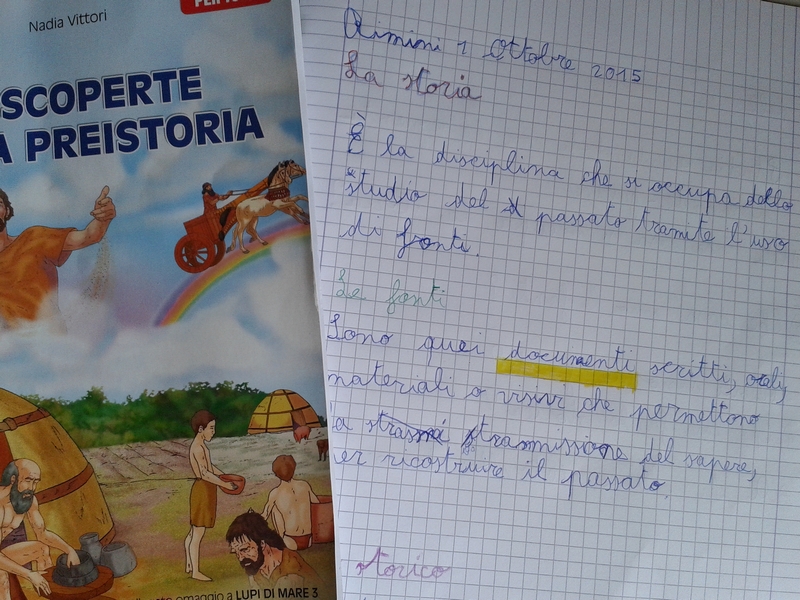 Nadia Vittori
SCOPERTE
A PREISTORIA
omaggio a LUPI DI MARE 3
Rimini 1 Ottobre 2015
La storia
È la disciplina che si occupa dello
studio del passato tramite l'uso
di fonti.
Le fonti
Sono quei documenti scritti, orali,
materiali o visivi che permettono
a trasmissione del sapere,
er ricostruire il passato.
storico